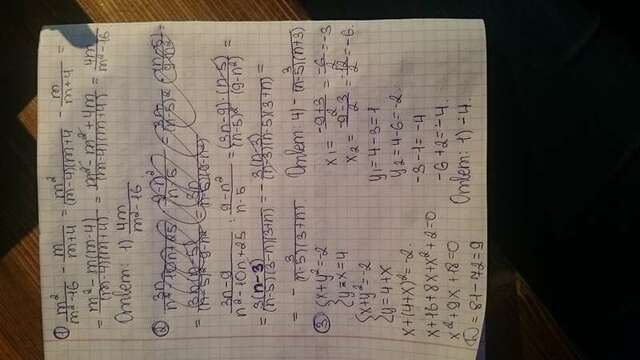 ① m²/(m²-16) - m/(m+4) = m²/((m-4)(m+4) - m/(m+4) =
= (m²-m(m-4))/((m-4)(m+4)) = (m²-m²+4m)/((m-4)(m+4)) = 4m/(m²-16)
Ответ: 1) 4m/(m²-16)
②
(3n-9)/(n²-10n+25) : (9-n²)/(n-5) = ((3n-9)·(n-5))/((n-5)²·(9-n²)) =
= 3(n-3)/((n-5)(3-n)(3+n)) = - 3(n-3)/((n-3)(n-5)(3+n)) =
= - 3/((n-5)(3+n)) Ответ: 4) - 3/((n-5)(n+3))
③ {x+y²=-2
y-x=4
{x+y²=-2
y=4+x
x+(4+x)²=-2.
x+16+8x+x²+2=0.
x²+9x+18=0
D=81-72=9
x₁=(-9+3)/2=-6/2=-3
x₂=(-9-3)/2=-12/2=-6.
y₁=4-3=1
y₂=4-6=-2.
-3-1=-4
-6+2=-4.
Ответ: 1) -4.